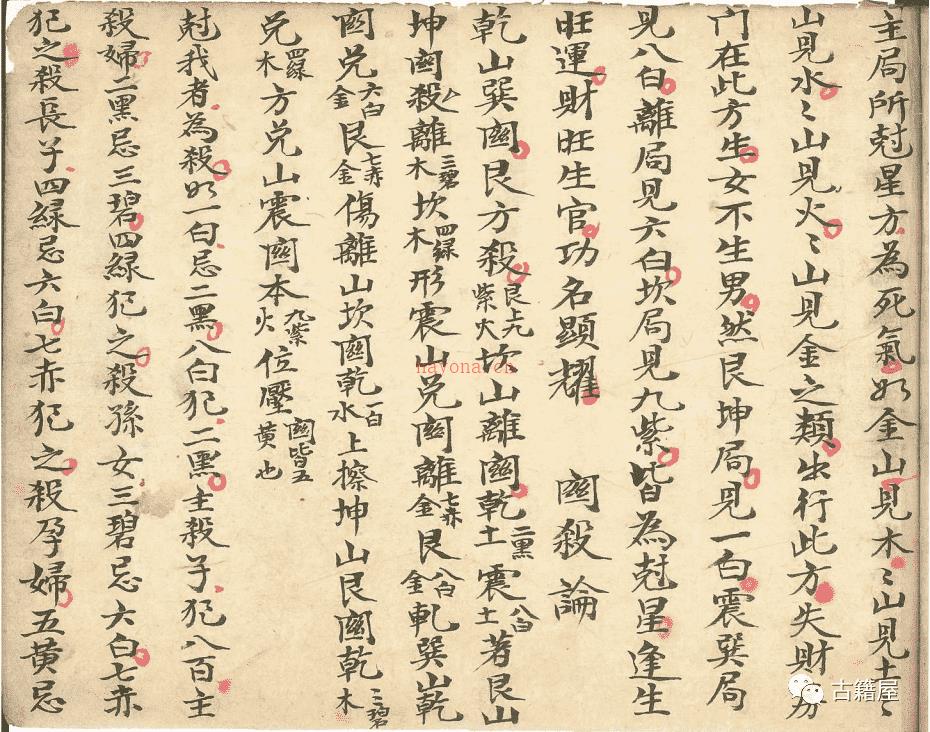 主局所尅星方為死氣如金山見木〻山見土〻
山見水〻山見火〻山見金之類出行此方失財房
门在此方生女不生男然艮坤局見一白震巽局
見八白離局見六白坎局見九紫皆為尅星逢生
旺運財旺生官功名顯耀 関殺論
乾山巽関艮方殺艮上九紫火坎山離関乾二黑土震八白土著艮山
坤関殺離三碧木坎四緑木形震山兑関離七赤金艮八白金乹巽山乾
関兑六白金艮七赤金傷離山坎関乾一白水上擦坤山艮関乾三碧木
兑四緑木方兑山震関本九紫火位壓関皆五黄也
尅我者為殺如一白忌二黑八白犯二黑主殺子犯八百主
殺婦二黑忌三碧四緑犯之殺孫女三碧忌六白七赤
犯之殺長子四緑忌六白七赤犯之殺孕婦五黄忌
nayona.cn
古籍屋